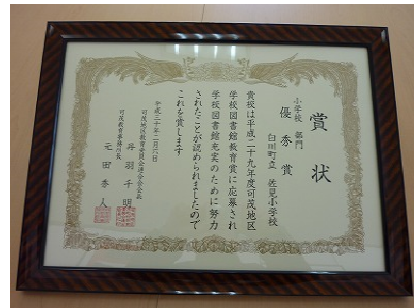 賞状
小学校 部門
優秀賞
白川町立 佐見小学校
貴校は平成二十九年度可茂地区
学校図書館教育賞に応募され
学校図書館充実のために努力
されたことが認められましたので
これを賞します
平成三十年二月六日
可茂地区教育委員会連合会会長
丹羽千明
可茂教育事務所長
元田秀人